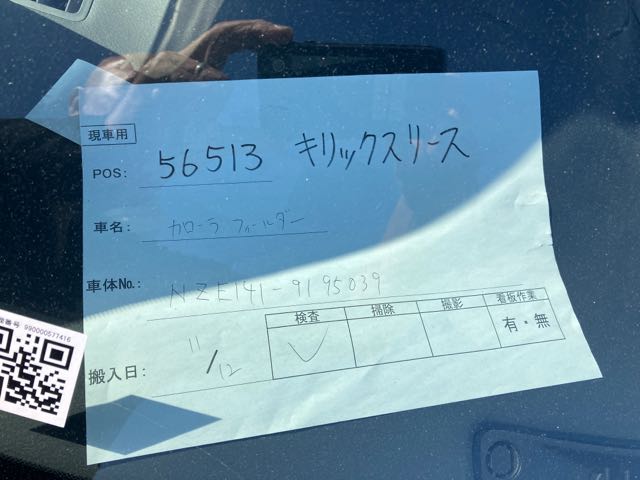 現車用
POS: 56513 キリックスリース
車名: カローラ フィールダー
車体No.: NZE141-9195039
検査 掃除 撮影 看板作業
有・無
搬入日: 11/12
番号 990000577416